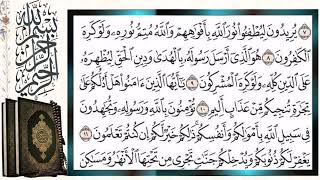 ٧ يُرِيدُونَ لِيُطْفِـُٔوا۟ نُورَ ٱللَّهِ بِأَفْوَٰهِهِمْ وَٱللَّهُ مُتِمُّ نُورِهِۦ وَلَوْ كَرِهَ
ٱلْكَٰفِرُونَ ٨ هُوَ ٱلَّذِىٓ أَرْسَلَ رَسُولَهُۥ بِٱلْهُدَىٰ وَدِينِ ٱلْحَقِّ لِيُظْهِرَهُۥ
عَلَى ٱلدِّينِ كُلِّهِۦ وَلَوْ كَرِهَ ٱلْمُشْرِكُونَ ٩ يَٰٓأَيُّهَا ٱلَّذِينَ ءَامَنُوا۟ هَلْ أَدُلُّكُمْ عَلَىٰ
تِجَٰرَةٍ تُنجِيكُم مِّنْ عَذَابٍ أَلِيمٍ ١٠ تُؤْمِنُونَ بِٱللَّهِ وَرَسُولِهِۦ وَتُجَٰهِدُونَ
فِى سَبِيلِ ٱللَّهِ بِأَمْوَٰلِكُمْ وَأَنفُسِكُمْ ذَٰلِكُمْ خَيْرٌ لَّكُمْ إِن كُنتُمْ تَعْلَمُونَ ١١
يَغْفِرْ لَكُمْ ذُنُوبَكُمْ وَيُدْخِلْكُمْ جَنَّٰتٍ تَجْرِى مِن تَحْتِهَا ٱلْأَنْهَٰرُ وَمَسَٰكِنَ